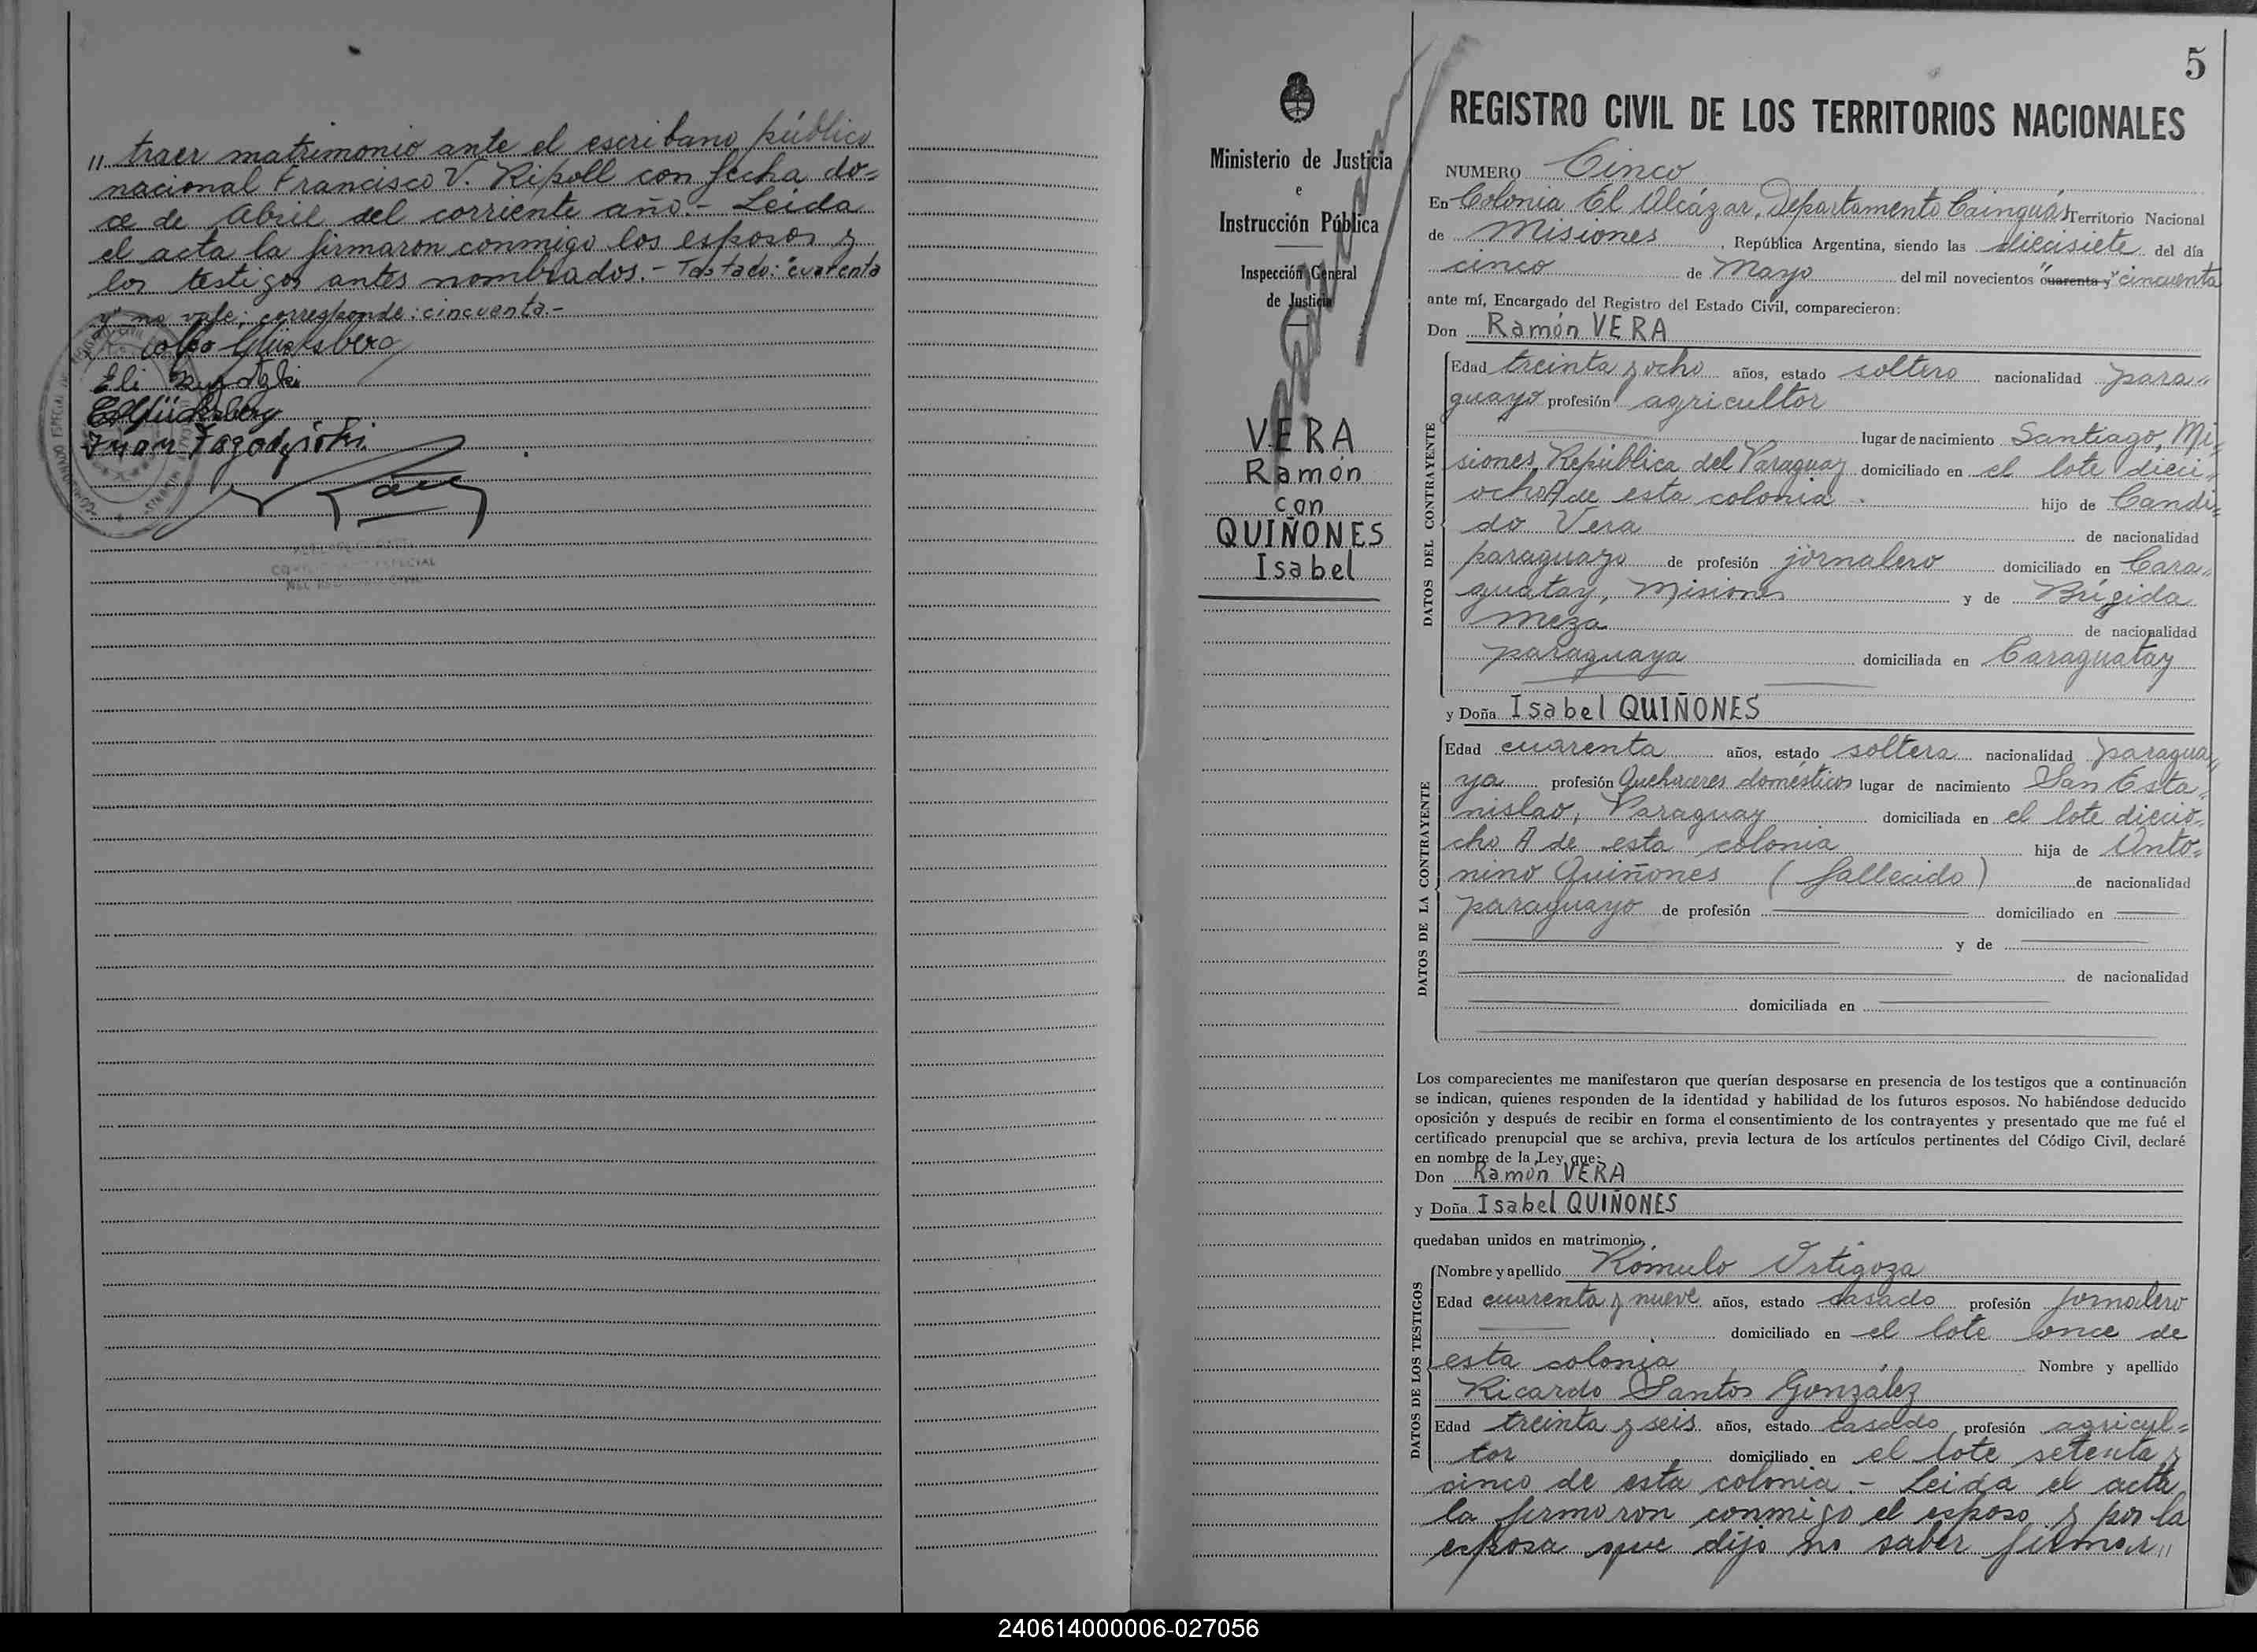 " traer matrimonio ante el escribano público
nacional Francisco V. Ripoll con fecha do=
ce de Abril del corriente año.- Leida
el acta la firmaron conmigo los esposos y
los testigos antes nombrados.- Tastado: "cuarenta
y" no vale; corresponde: cincuenta.-
Glücksberg
Eli
EGlücksberg
Juan
5
Ministerio de Justicia
e
Instrucción Pública
Inspección General
de Justicia
VERA
Ramón
con
QUIÑONES
Isabel
REGISTRO CIVIL DE LOS TERRITORIOS NACIONALES
NUMERO Cinco
En Colonia El Alcázar, Departamento Cainguás Territorio Nacional
de Misiones, República Argentina, siendo las diecisiete del día
cinco de Mayo del mil novecientos "cuarenta y" cincuenta
ante mí, Encargado del Registro del Estado Civil, comparecieron:
Don Ramón VERA
DATOS DEL CONTRAYENTE
Edad treinta y ocho años, estado soltero nacionalidad para"
guayo profesión agricultor
lugar de nacimiento Santiago, Mi=
siones, República del Paraguay domiciliado en el lote dieci=
ocho A de esta colonia hijo de Candi=
do Vera de nacionalidad
paraguayo de profesión jornalero domiciliado en Cara"
guatay, Misiones y de Brígida
Meza de nacionalidad
paraguaya domiciliada en Caraguatay
y Doña Isabel QUIÑONES
DATOS DE LA CONTRAYENTE
Edad cuarenta años, estado soltera nacionalidad paragua"
ya profesión Quehaceres domésticos lugar de nacimiento San Esta=
nislao, Paraguay domiciliada en el lote diecio=
cho A de esta colonia hija de Anto=
nino Quiñones (fallecido) de nacionalidad
paraguayo de profesión domiciliado en
y de
de nacionalidad
domiciliada en
Los comparecientes me manifestaron que querían desposarse en presencia de los testigos que a continuación
se indican, quienes responden de la identidad y habilidad de los futuros esposos. No habiéndose deducido
oposición y después de recibir en forma el consentimiento de los contrayentes y presentado que me fué el
certificado prenupcial que se archiva, previa lectura de los artículos pertinentes del Código Civil, declaré
en nombre de la Ley que:
Don Ramón VERA
y Doña Isabel QUIÑONES
quedaban unidos en matrimonio.
DATOS DE LOS TESTIGOS
Nombre y apellido Rómulo Ortigoza
Edad cuarenta y nueve años, estado casado profesión jornalero
domiciliado en el lote once de
esta colonia Nombre y apellido
Ricardo Santos González
Edad treinta y seis años, estado casado profesión agricul=
tor domiciliado en el lote setenta y
cinco de esta colonia.- Leida el acta
la firmaron conmigo el esposo y por la
esposa que dijo no saber firmar "
240614000006-027056